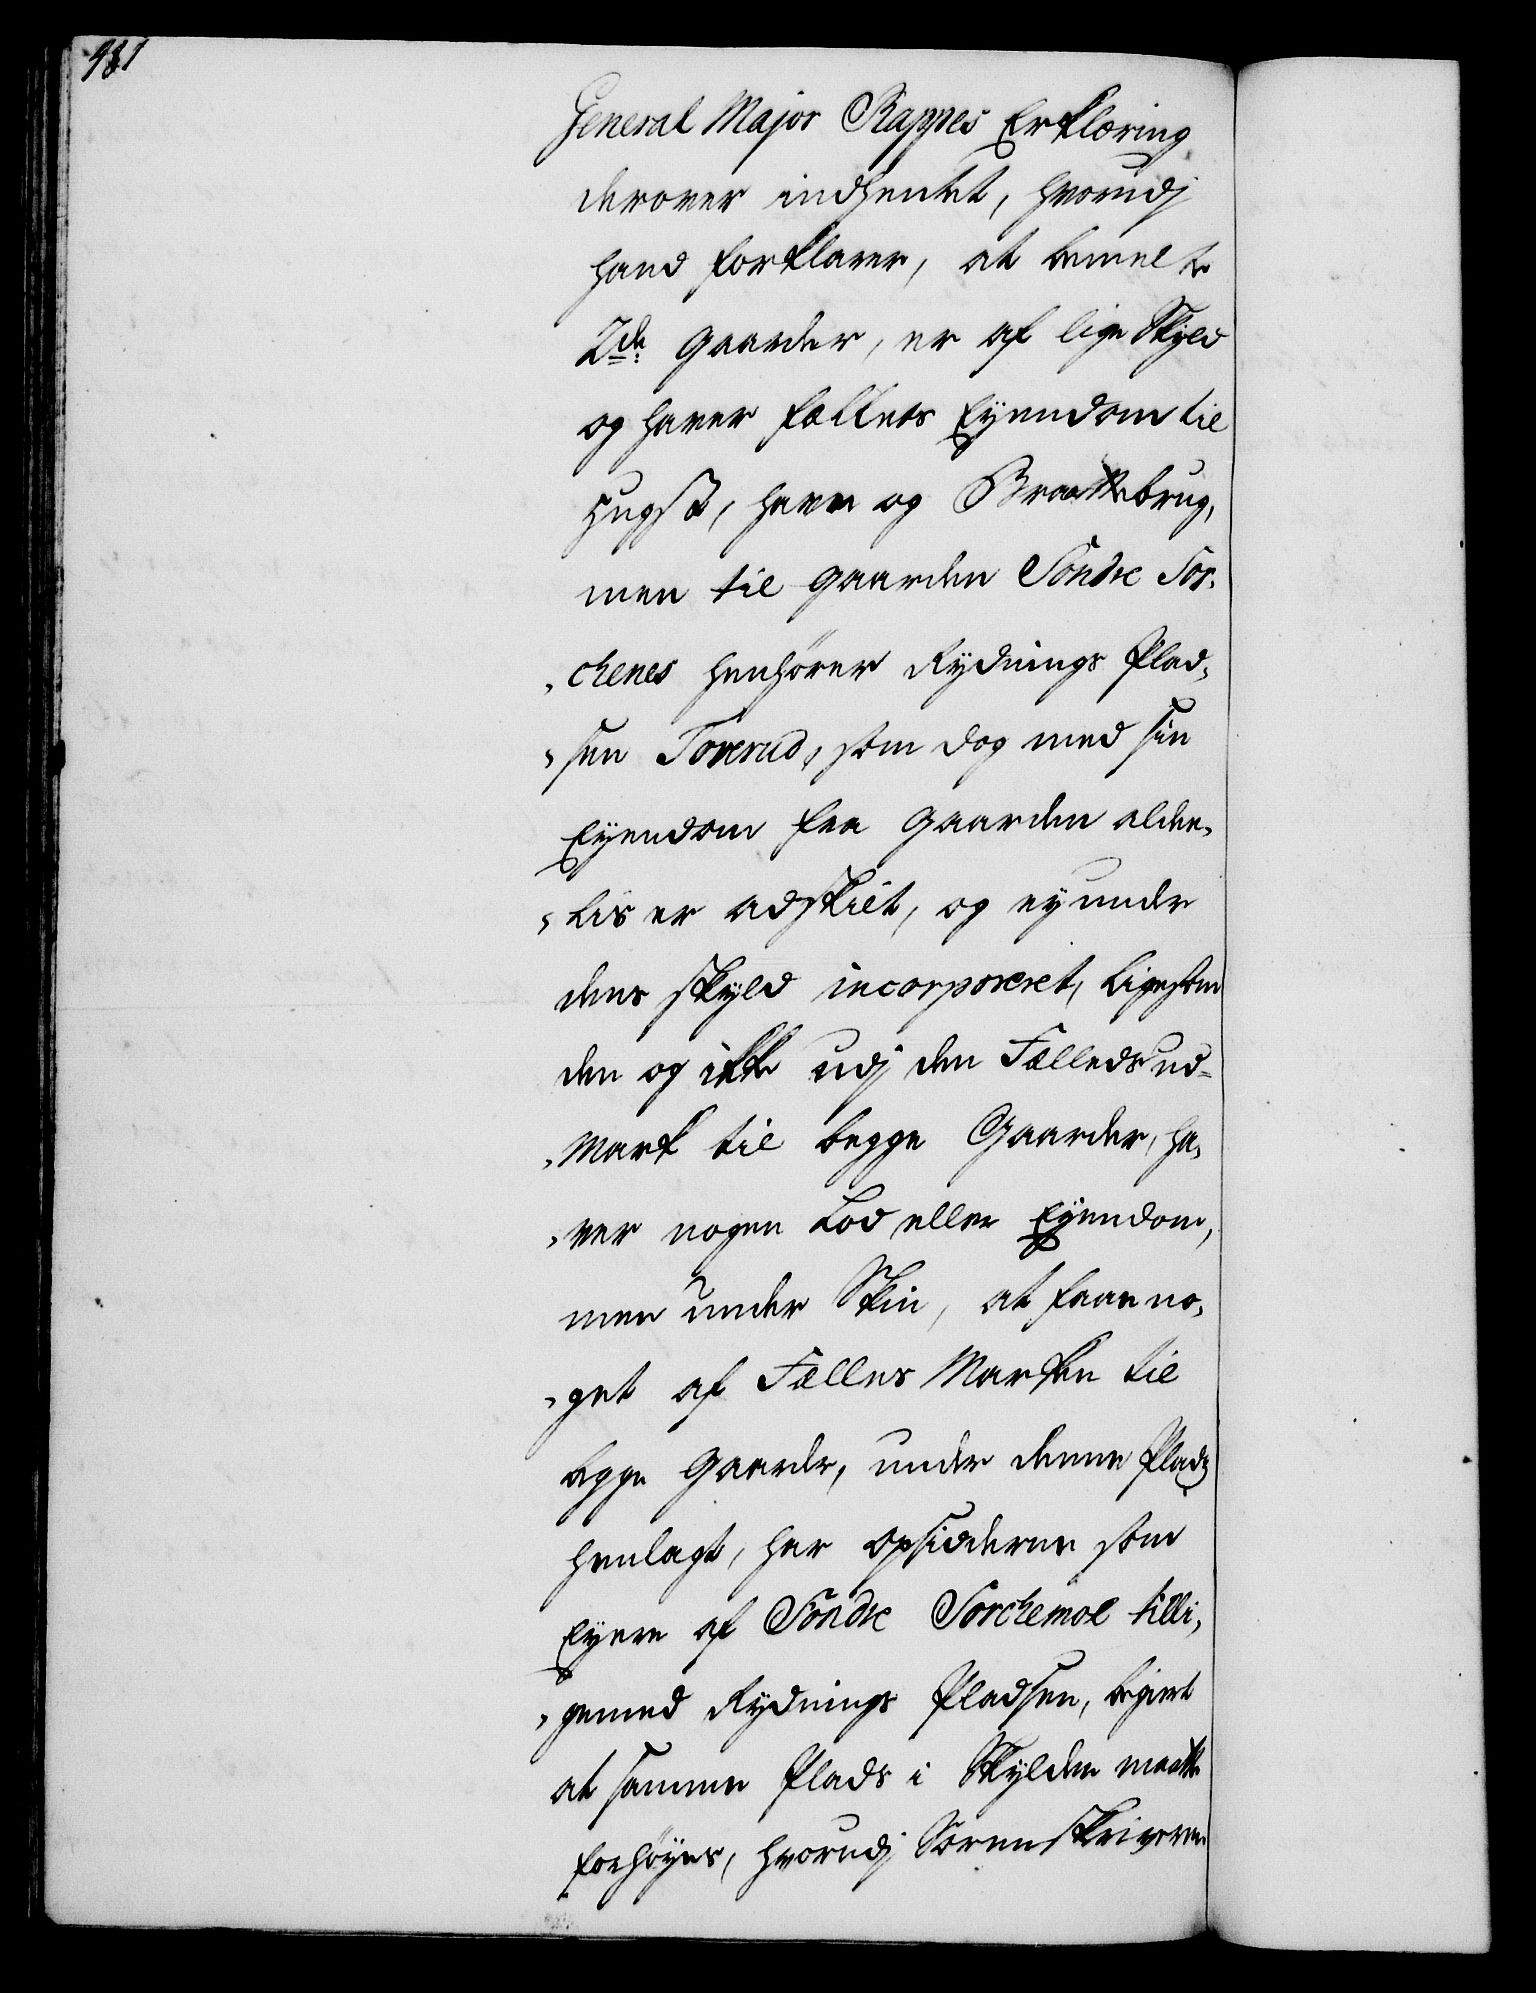 981
General Major Rappes Erklæring
derover indhentet, hvorudj
hand forklarer, at bemelte
2de Gaarder, er af lige Skyld
og haver fælleds Eyendom til
Hugst, havn og Braattebrug,
men til Gaarden Söndre Tor-
chenes henhörer Rydnings Plad-
sen Toverud, som dog med sin
Eyendom fra Gaarden alde-
les er adskilt, og ey under
dens Skyld incorporeret, ligesom
den og ikke udj den Fælleds ud-
Mark til begge Gaarder, ha-
ver nogen Lod eller Eyendom,
men under Skin, at faae no-
get af Fælles Marken til
begge Gaarder, under denne Plads
henlagt, har Opsidderne som
Eyere af Söndre Torchemoe tilli-
gemed Rydnings Pladsen, begiert
at samme Plads i Skylden maatte
forhöyes, hvorudj Sorenskriveren